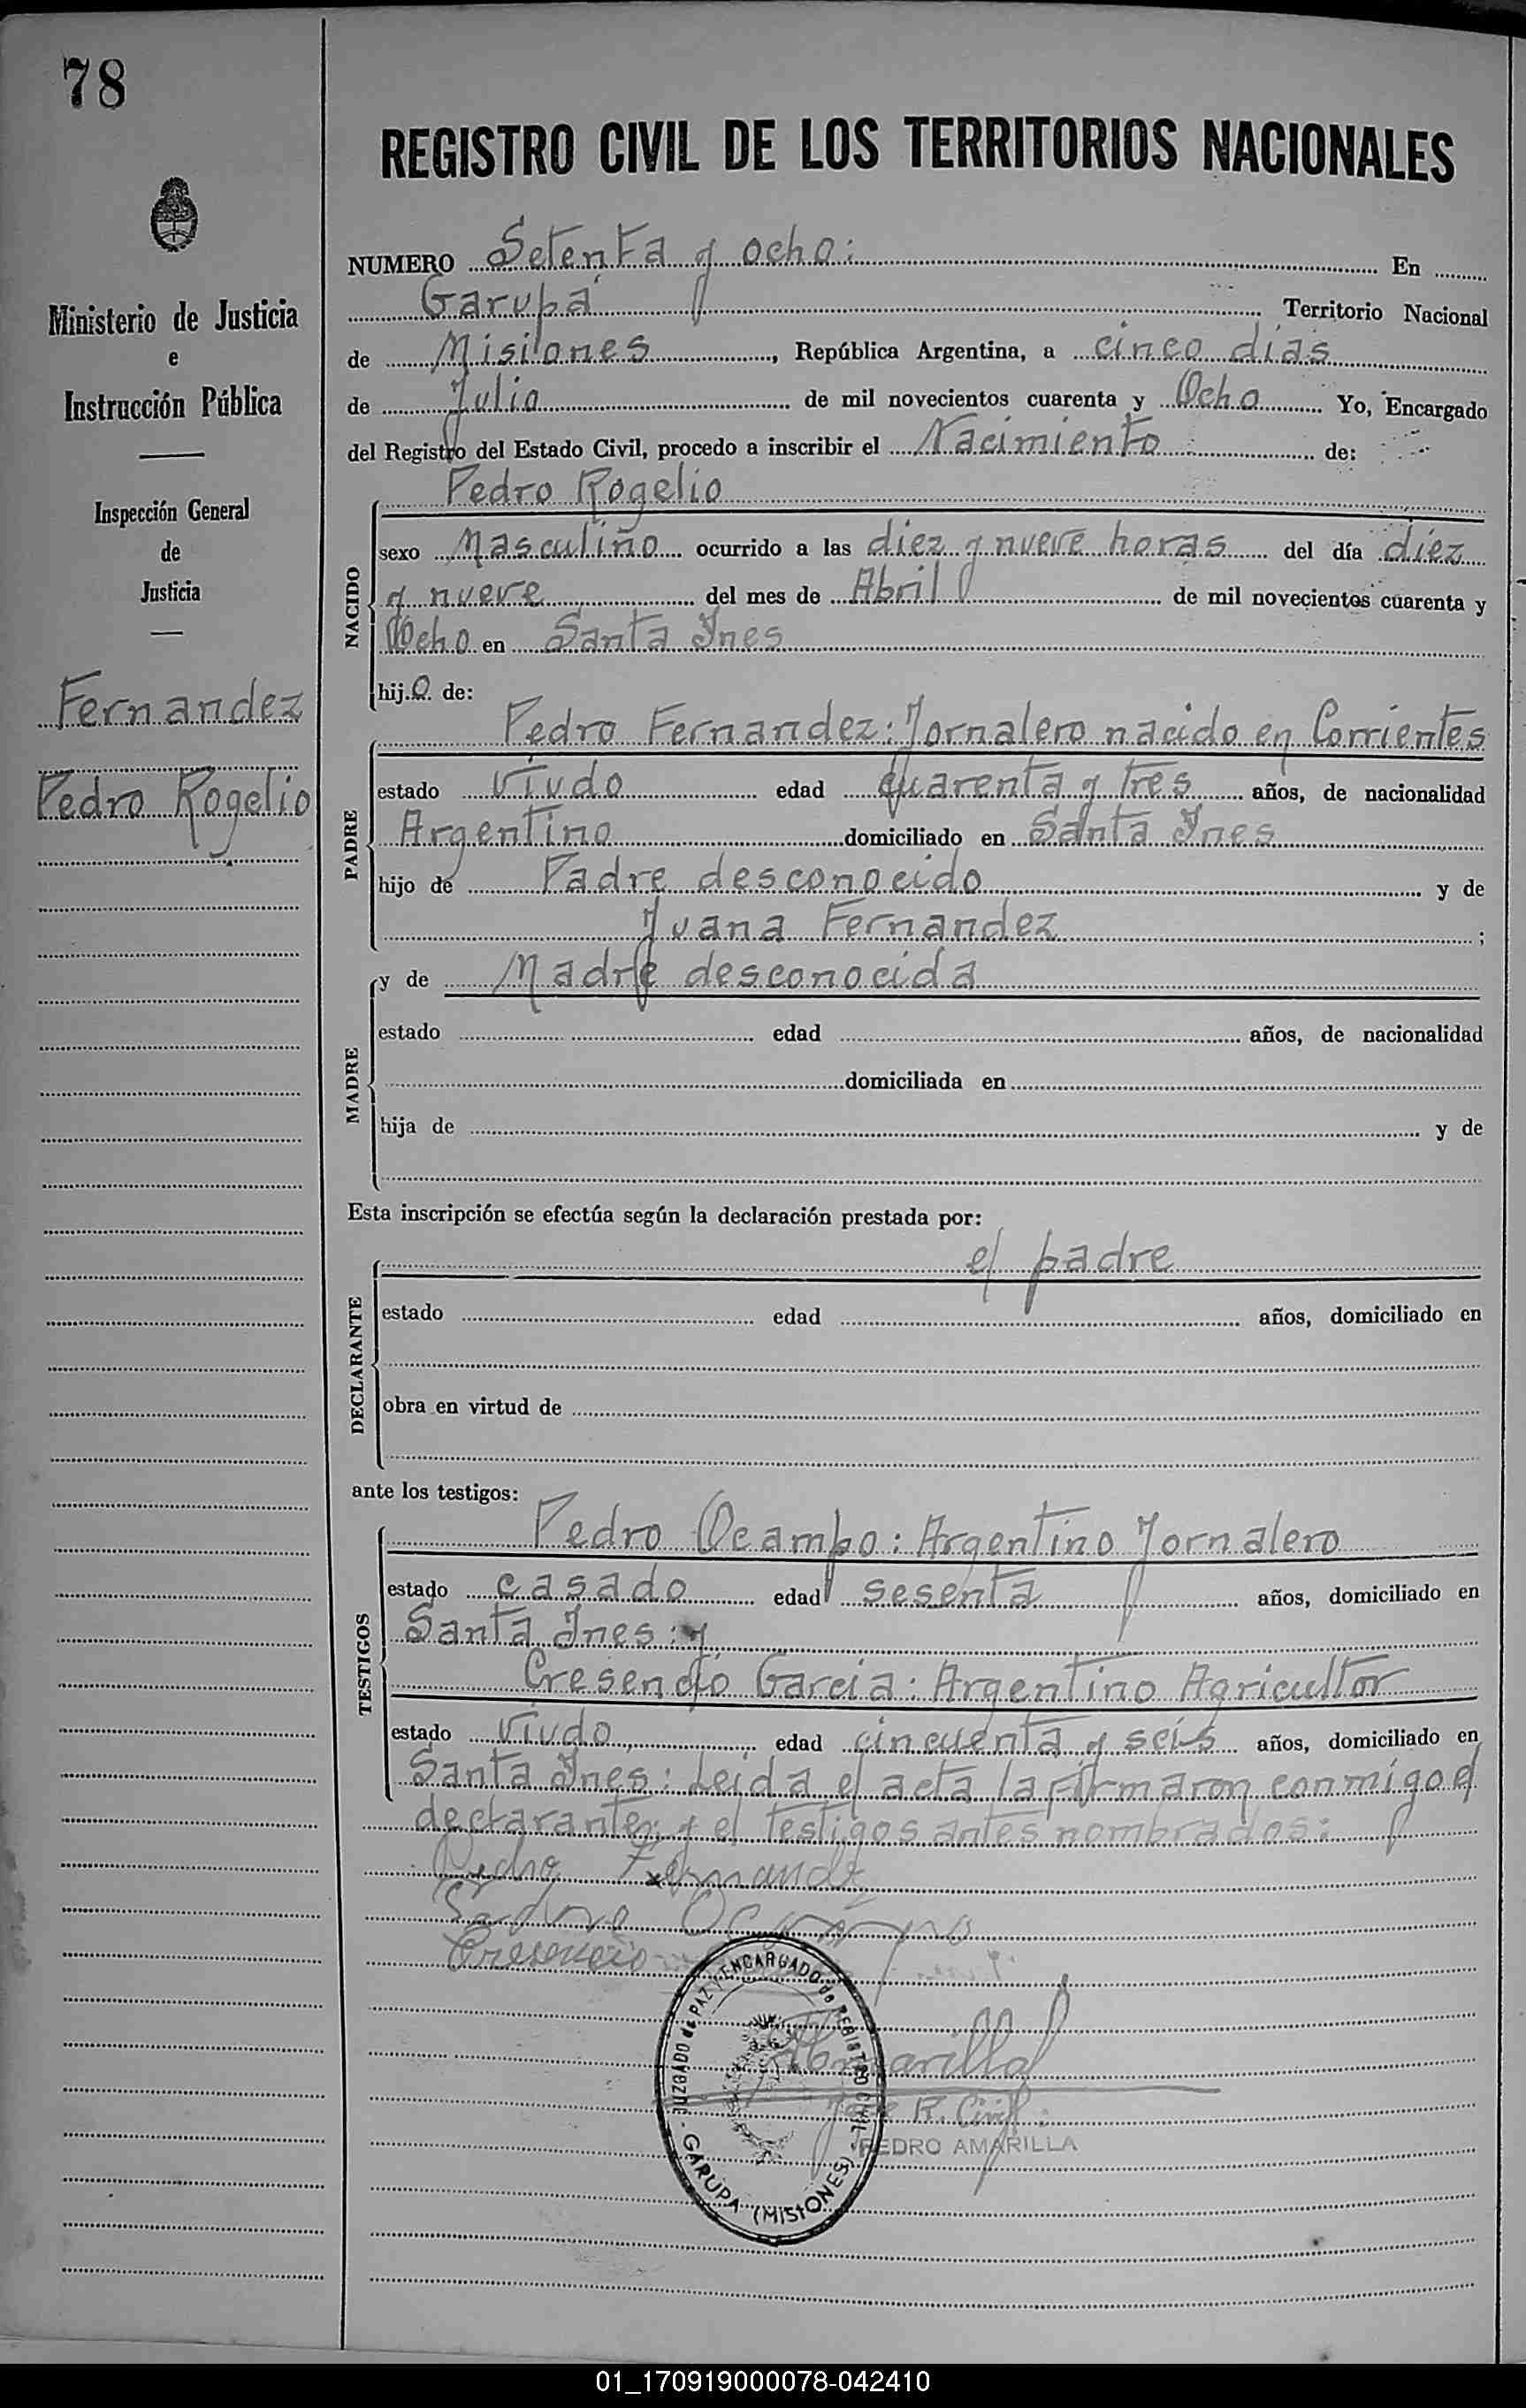 78
Ministerio de Justicia
e
Instrucción Pública
Inspección General
de
Justicia
Fernandez
Pedro Rogelio
REGISTRO CIVIL DE LOS TERRITORIOS NACIONALES
NUMERO Setenta y ocho: En
Garupá Territorio Nacional
de Misiones, República Argentina, a cinco dias
de Julio de mil novecientos cuarenta y Ocho Yo, Encargado
del Registro del Estado Civil, procedo a inscribir el Nacimiento de:
Pedro Rogelio
NACIDO
sexo Masculino ocurrido a las diez y nueve horas del día diez
y nueve del mes de Abril de mil novecientos cuarenta y
Ocho en Santa Ines
hijo de:
Pedro Fernandez: Jornalero nacido en Corrientes
PADRE
estado Viudo edad quarenta y tres años, de nacionalidad
Argentino domiciliado en Santa Ines
hijo de Padre desconocido y de
Juana Fernandez ;
MADRE
y de Madre desconocida
estado edad años, de nacionalidad
domiciliada en
hija de y de
Esta inscripción se efectúa según la declaración prestada por:
el padre
DECLARANTE
estado edad años, domiciliado en
obra en virtud de
ante los testigos:
Pedro Ocampo: Argentino Jornalero
TESTIGOS
estado casado edad sesenta años, domiciliado en
Santa Ines: y
Cresencio Garcia: Argentino Agricultor
estado Viudo, edad cincuenta y seis años, domiciliado en
Santa Ines: Leida el acta la firmaron conmigo el
declarante: y el testigos antes nombrados:
Pedro Fernande
Pedro Ocampo
Cresencio
JUZGADO de PAZ Y ENCARGADO de REGISTRO CIVIL - GARUPA (MISIONES) -
Amarilla
R. Civil:
PEDRO AMARILLA
01_170919000078-042410